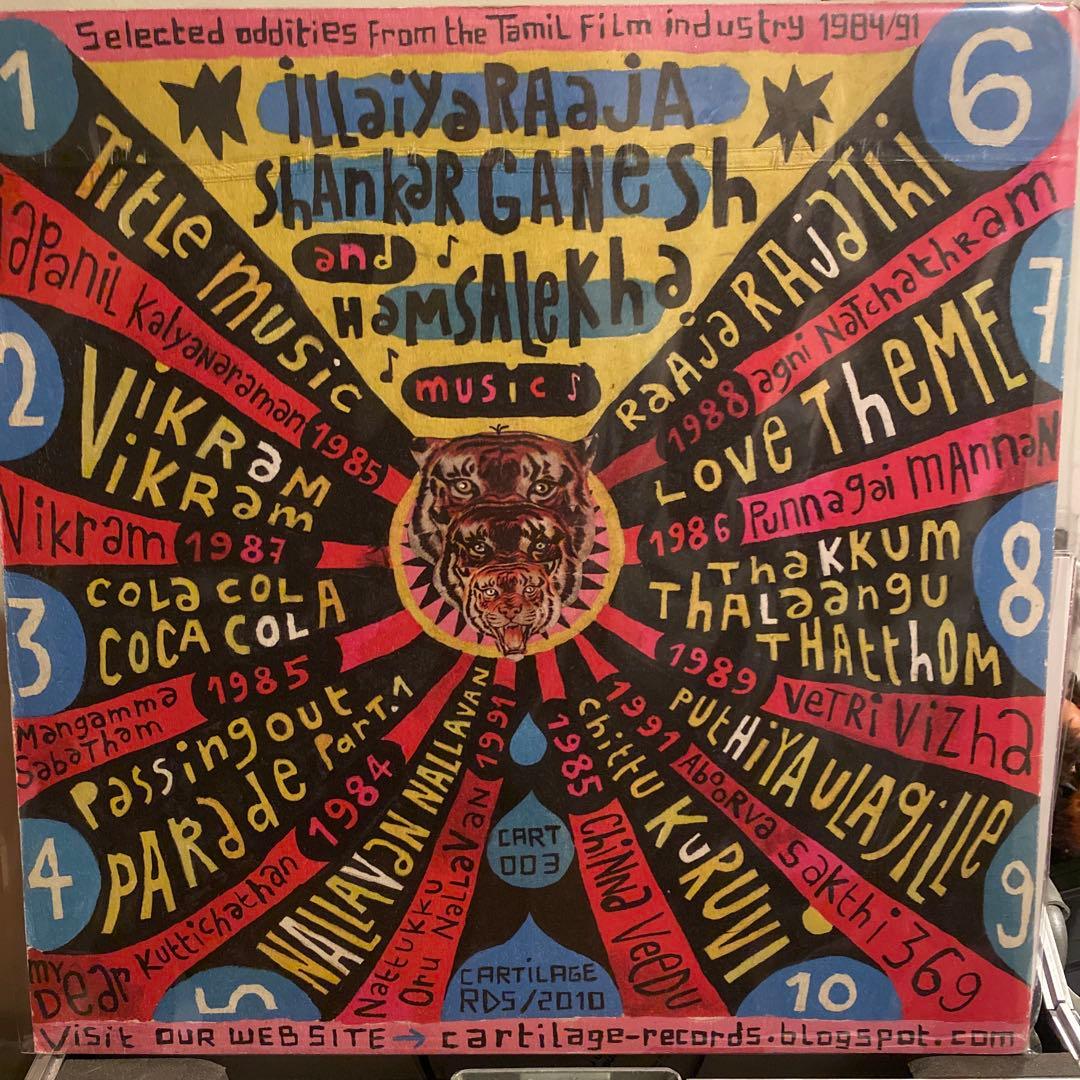 Selected oddities from the Tamil Film industry 1984/91
iLLaiyaRAaJA
ShAnkaR GANeSh
and
HaMSALeKha
music
1
Title Music
Japanil Kalyanaraman 1985
2
ViKRaM
ViKRam
Vikram 1987
3
COLa COL
COCA COLA
1985
Mangamma
Sabatham
4
Passing out
PARade Part.1
1984
my Dear Kuttichathan
5
NALLAVaN NALLAVAN
1991
Nattukku
Oru NaLLaVan
6
RaAJa RAJaThi
1988 agni NatchathRam
7
LOVe TheME
1986 Punnagai MAnnaN
8
ThaKKUM
ThALaangu
THAtthOM
1989 VeTRi ViZha
9
PUtHiYA uLAgiLLe
1991 AbooRva SaKthi 369
10
ChittU KuRUVI
1985 ChiNNa VeeDU
CART
003
CARTiLAGE
RDS/2010
Visit OUR WEB SITE → cartilage-records.blogspot.com